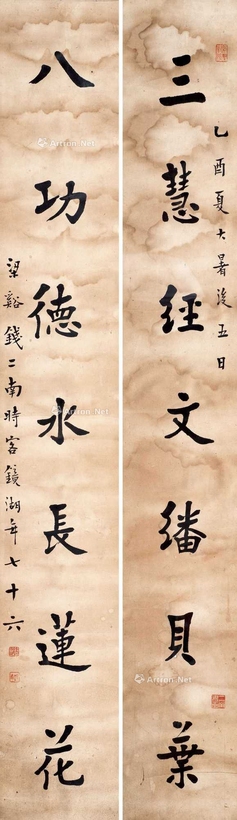 三慧經文繙貝葉
乙酉夏大暑後五日
八功德水長蓮花
梁谿錢二南時客鏡湖年七十六
Artron.Net
Artron.Net
Artron.Net
Artron.Net